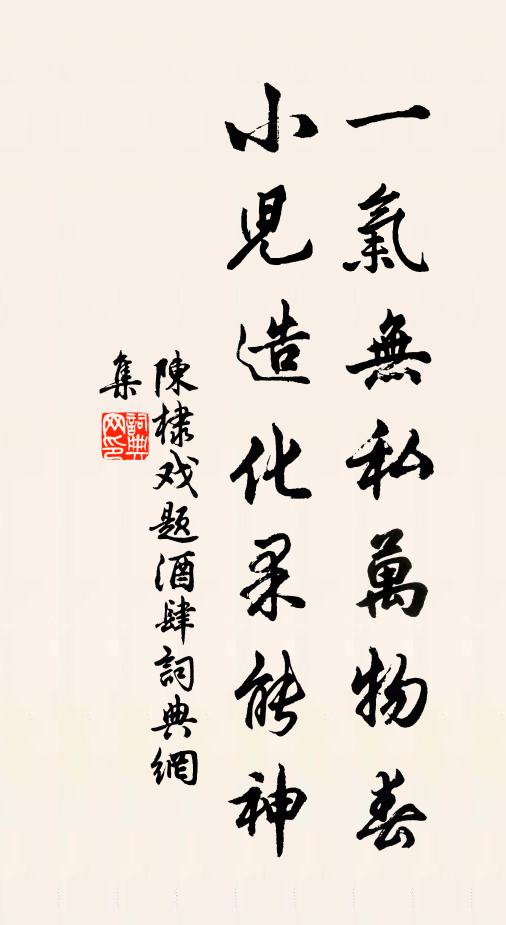 一氣無私萬物春
小児造化果能神
陳棣戏题酒肆詞典網
集
詞典
网印